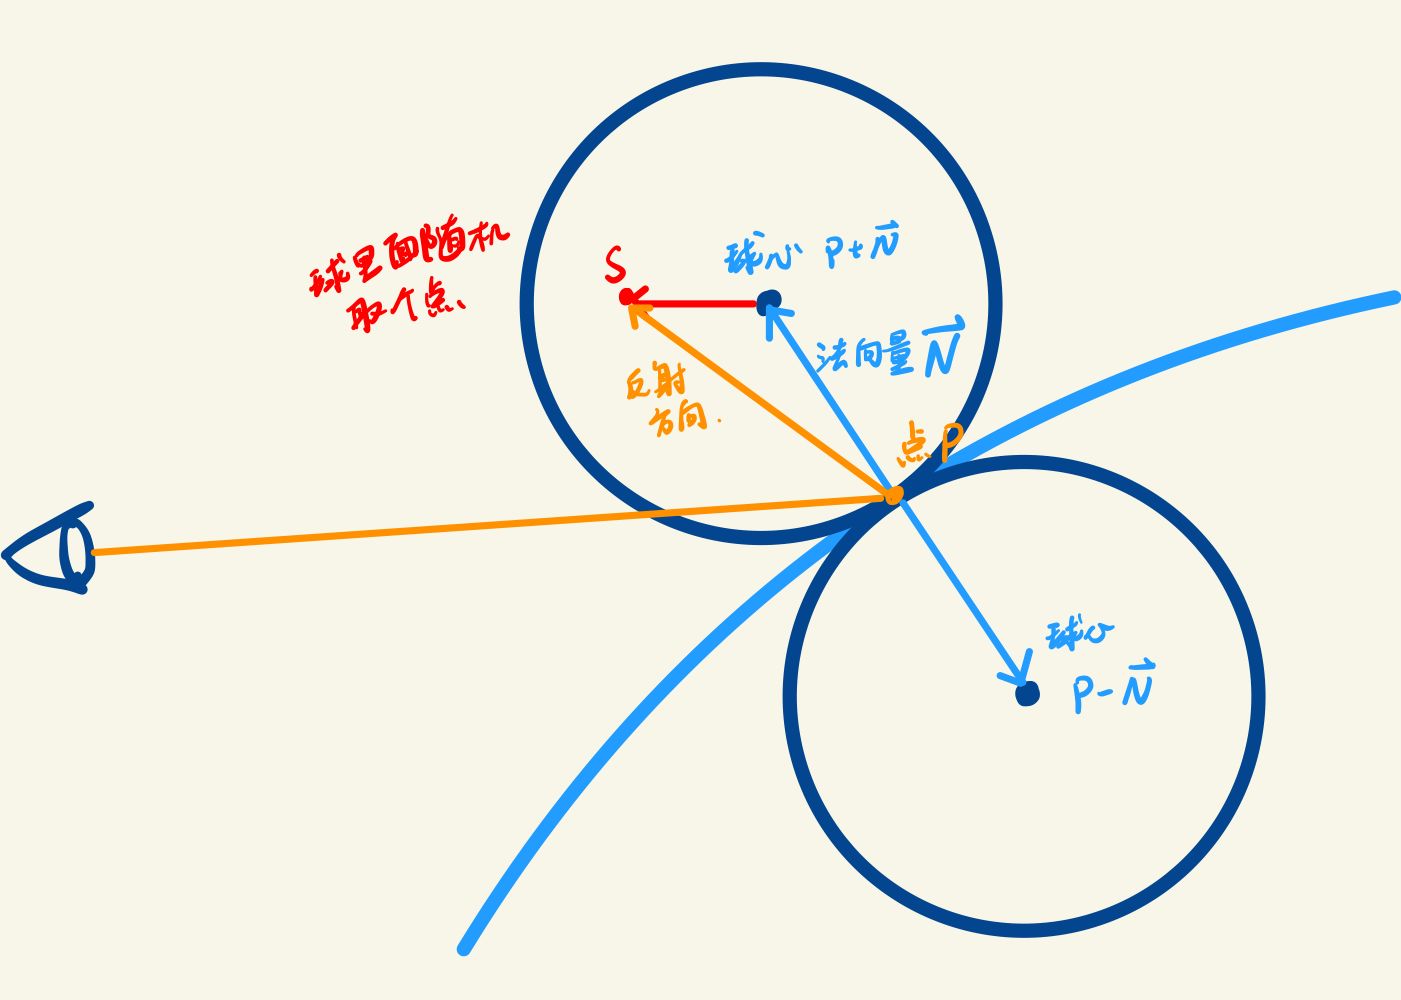 球里面随机
取个点
S
球心 P+N⃗
法向量 N⃗
反射
方向.
点P
球心
P-N⃗